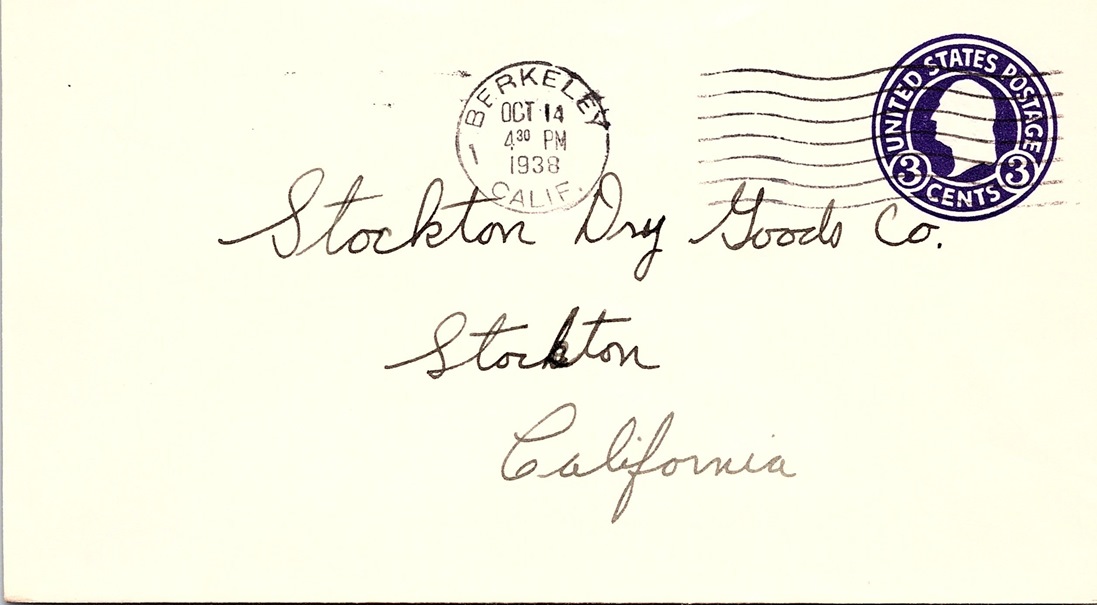 BERKELEY
OCT 14
4 30 PM
1938
1
CALIF.
UNITED STATES POSTAGE
3 CENTS 3
Stockton Dry Goods Co.
Stockton
California